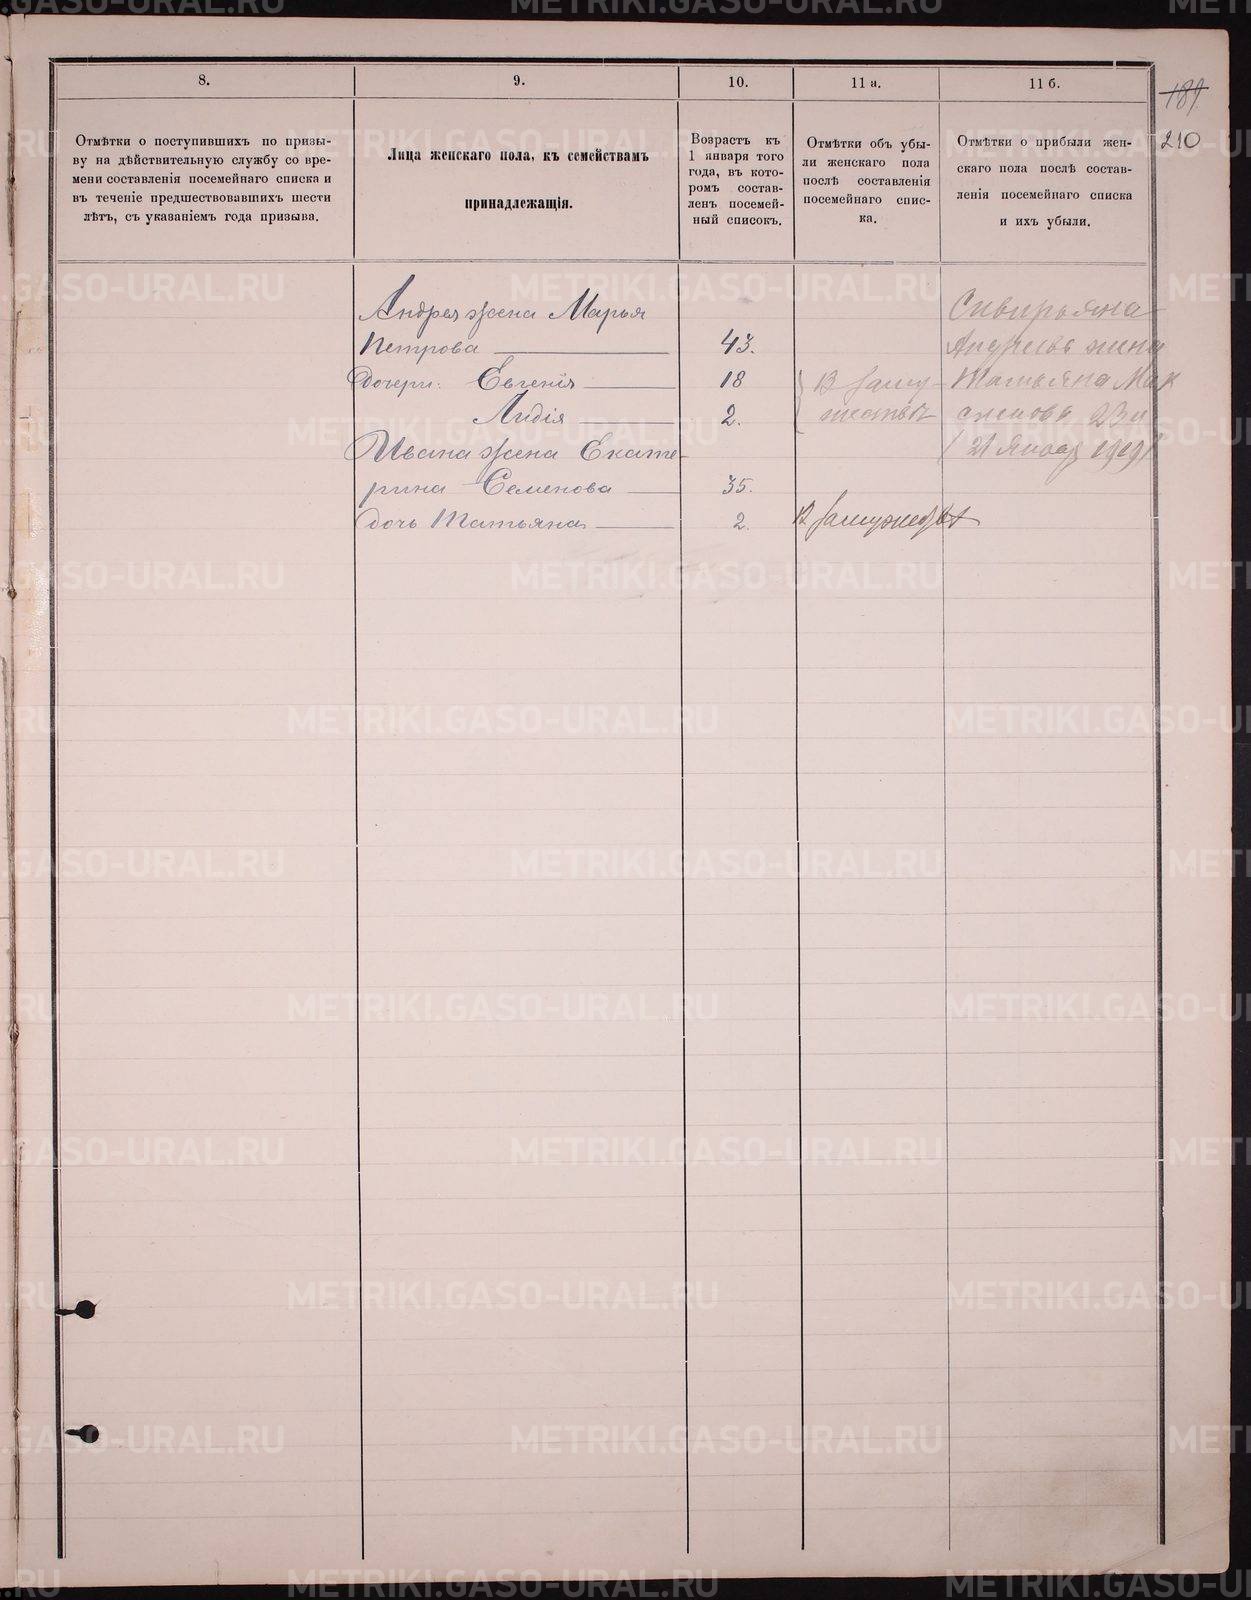 8.
9.
10.
11 а.
11 б.
189
210
Отмѣтки о поступившихъ по призы-
ву на дѣйствительную службу со вре-
мени составленія посемейнаго списка и
въ теченіе предшествовавшихъ шести
лѣтъ, съ указаніемъ года призыва.
Лица женскаго пола, къ семействамъ
принадлежащія.
Возрастъ къ
1 января того
года, въ кото-
ромъ состав-
ленъ посемей-
ный списокъ.
Отмѣтки объ убы-
ли женскаго пола
послѣ составленія
посемейнаго спис-
ка.
Отмѣтки о прибыли жен-
скаго пола послѣ состав-
ленія посемейнаго списка
и ихъ убыли.
Андрея жена Марья
Петрова 43.
дочери: Евгенія 18
Лидія 2.
Ивана жена Екате-
рина Семенова 35.
дочь Татьяна 2.
В заму-
жествѣ
В замужествѣ
жена
Татьяна Мак
23 л
METRIKI.GASO-URAL.RU